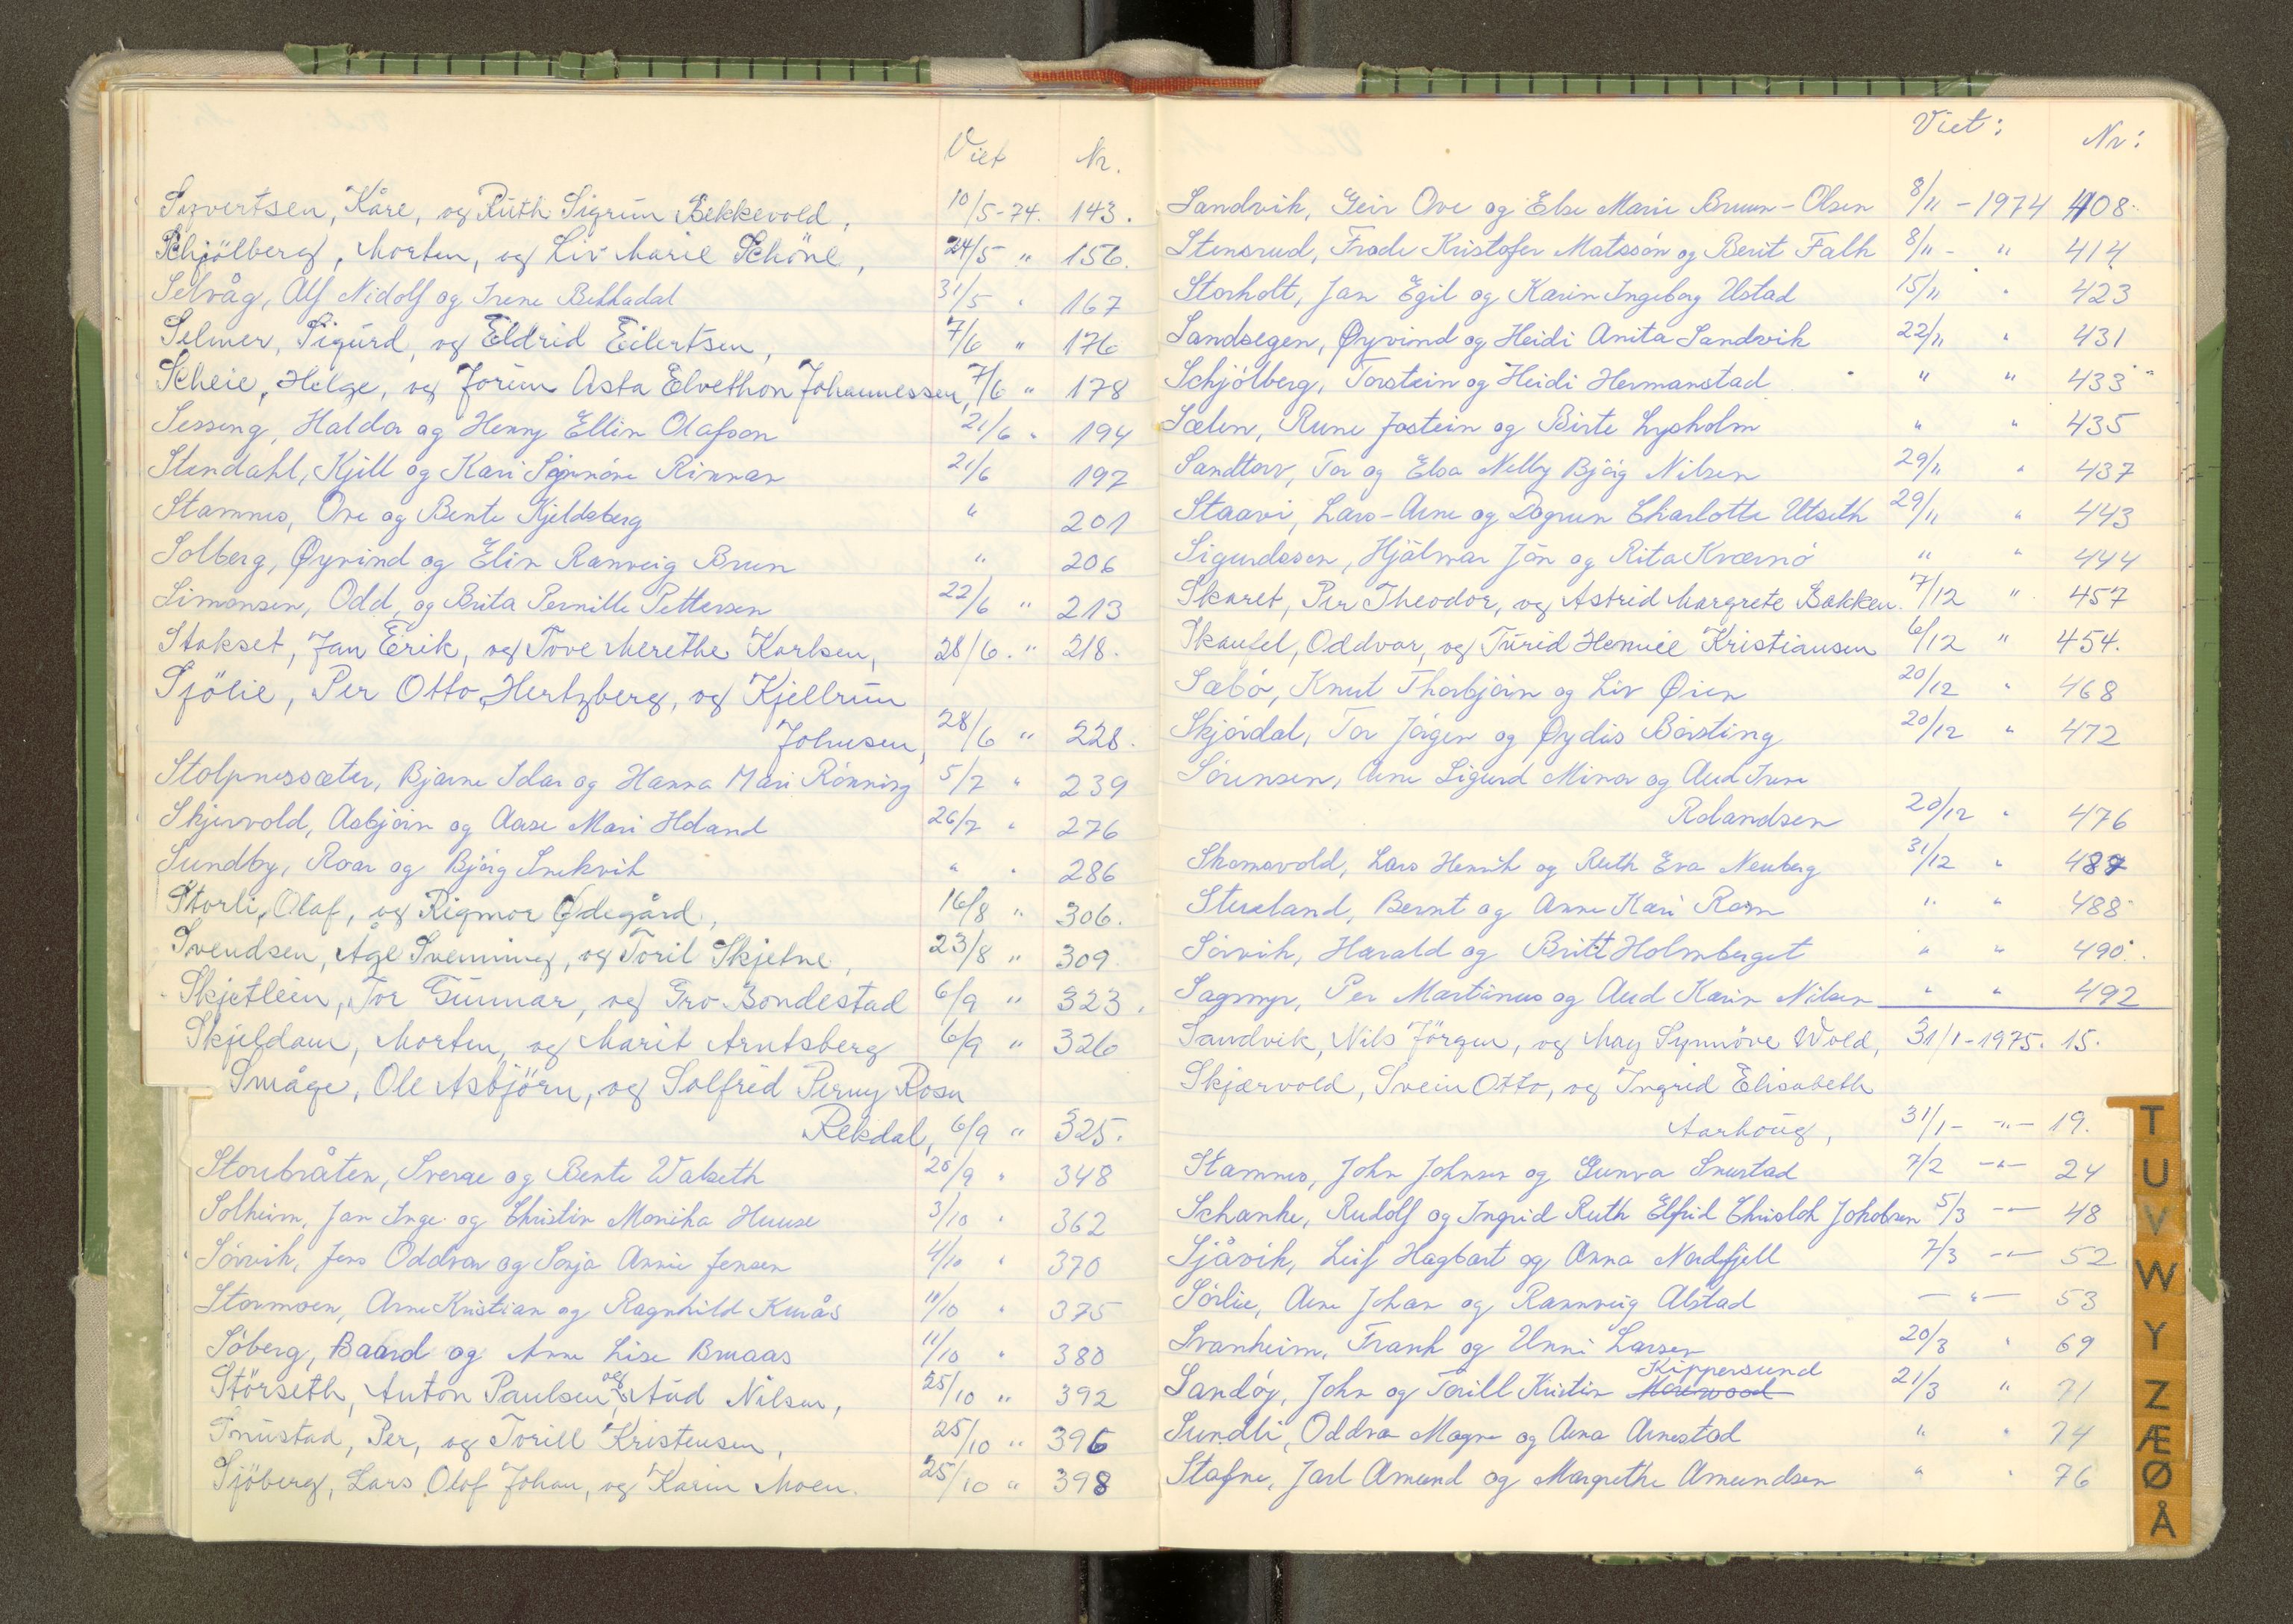 Viet Nr.
Syvertsen, Kåre, og Ruth Sigrun Bekkevold, 10/5-74. 143.
Schjölberg, Morten, og Liv Marie Schöne, 24/5 " 156.
Selvåg, Alf Nidolf og Irene Bekkadal 31/5 " 167
Selmer, Sigurd, og Eldrid Eilertsen, 7/6 " 176
Scheie, Helge, og Jorun Asta Elvethon Johannessen, 7/6 " 178
Sesseng, Haldor og Henny Ellin Olafson 21/6 " 194
Stendahl, Kjell og Kari Synnöve Rinnan 21/6 197
Stamnes, Ove og Bente Kjeldsberg " 201
Solberg, Øyvind og Elin Ranveig Brun " 206
Simonsen, Odd, og Brita Pernille Pettersen 22/6 " 213
Stokset, Jan Erik, og Tove Merethe Karlsen, 28/6. " 218.
Sjölie, Per Otto Hertzberg, og Kjellrun
Johnsen, 28/6 " 228.
Stolpnessæter, Bjarne Idar og Hanna Mari Rönning 5/7 " 239
Skjervold, Asbjörn og Aase Mari Holand 26/7 " 276
Sundby, Roar og Björg Snekvik " " 286
Storli, Olaf, og Rigmor Ødegård, 16/8 " 306.
Svendsen, Åge Svenning, og Toril Skjetne, 23/8 " 309
Skjetlein, Tor Gunnar, og Gro Bondestad 6/9 " 323.
Skjeldam, Morten, og Marit Arntsberg 6/9 " 326
Småge, Ole Asbjörn, og Solfrid Perny Rosu
Rekdal, 6/9 " 325.
Storbråten, Sverre og Bente Walseth 20/9 " 348
Solheim, Jan Inge og Christin Monika Huuse 3/10 " 362
Sörvik, Jens Oddvar og Sonja Annie Jensen 4/10 " 370
Stormoen, Arne Kristian og Ragnhild Kurås 11/10 " 375
Söberg, Baard og Anne Lise Bruaas 11/10 " 380
Störseth, Anton Paulsen og Aud Nilsen, 25/10 " 392
Snustad, Per, og Torill Kristensen, 25/10 " 396
Sjöberg, Lars Olof Johan, og Karin Moen. 25/10 " 398
Viet: Nr:
Sandvik, Geir Ove og Else Marie Bruun-Olsen 8/11 - 1974 408
Stensrud, Frode Kristofer Matsson og Berit Falk 8/11 - " 414
Storholt, Jan Egil og Karin Ingeborg Ustad 15/11 " 423
Sandsegen, Øyvind og Heidi Anita Sandvik 22/11 " 431
Schjölberg, Torstein og Heidi Hermanstad " " 433
Sælen, Rune Jostein og Birte Lysholm " " 435
Sandtorv, Tor og Elsa Nelly Björg Nilsen 29/11 " 437
Staavi, Lars-Arne og Dagrun Charlotte Utseth 29/11 " 443
Sigurdsson, Hjálmar Jón og Rita Kværnö " " 444
Skaret, Per Theodor, og Astrid Margrete Bakken. 7/12 " 457
Skaufel, Oddvar, og Turid Hennie Kristiansen 6/12 " 454.
Sæbö, Knut Thorbjörn og Liv Øien 20/12 " 468
Skjördal, Tor Jörgen og Øydis Börsting 20/12 " 472
Sörensen, Arne Sigurd Minor og Aud Irene
Rolandsen 20/12 " 476
Skomsvold, Lars Henrik og Ruth Eva Neuberg 31/12 " 487
Stueland, Bernt og Anne Kari Rosm " " 488
Sörvik, Harald og Britt Holmberget " " 490.
Sagmyr, Per Martinus og Aud Karin Nilsen " " 492
Sandvik, Nils Jörgen, og May Synnöve Wold, 31/1-1975. 15.
Skjærvold, Svein Otto, og Ingrid Elisabeth
Aarhoug, 31/1- -"- 19.
Stamnes, John Johnsen og Gunva Snustad 7/2 -"- 24
Schanke, Rudolf og Ingrid Ruth Elfrid Jakobsen 5/3 -"- 48
Sjåvik, Leif Hagbart og Anna Nordfjell 7/3 -"- 52
Sörlie, Arne Johan og Rannveig Alstad -"- 53
Svanheim, Frank og Unni Larsen 20/3 " 69
Kippersund
Sandöy, John og Torill Kristin 21/3 " 71
Sundli, Oddvar Magne og Arna Arnestad " " 74
Stafne, Jarl Amund og Margrethe Amundsen " " 76
T
U
V
W
Y
Z
Æ
Ø
Å